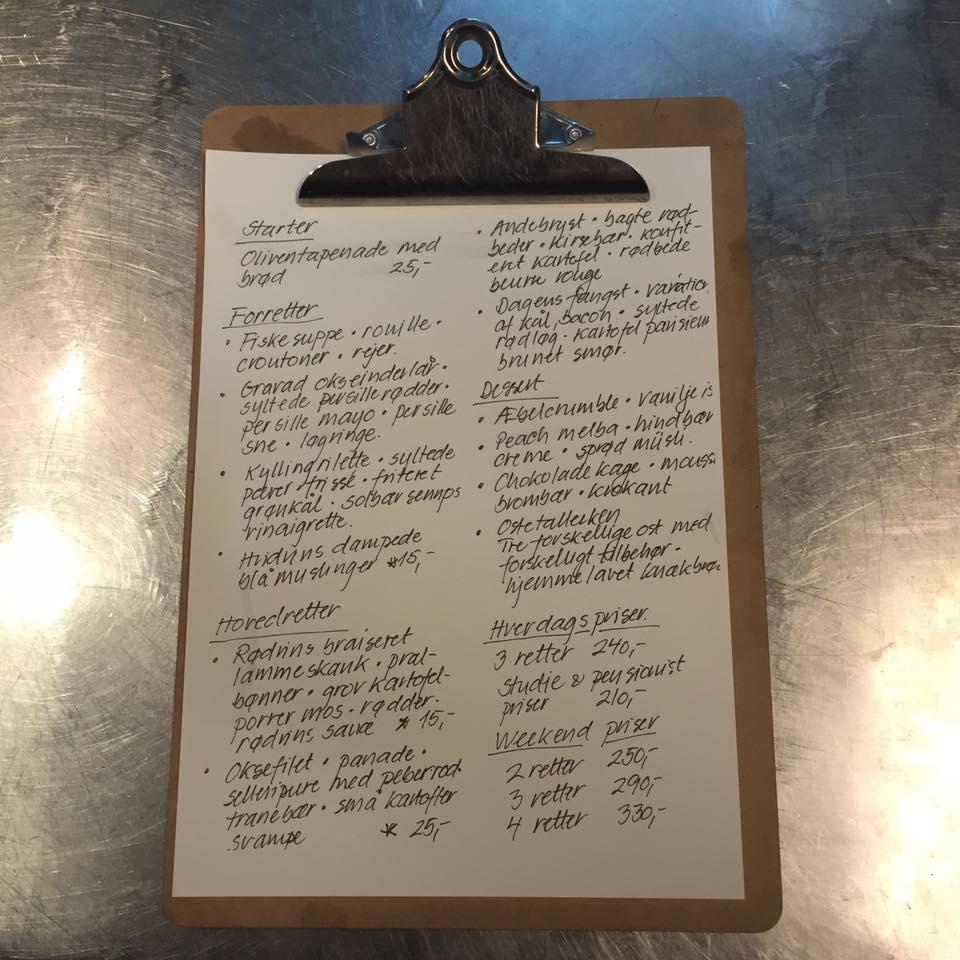 Starter
Oliventapenade med
brød 25,-
Forretter
• Fiskesuppe • rouille •
croutoner • rejer.
• Gravad okseinderlår •
syltede persillerødder •
persille mayo • persille
sne • løgringe.
• Kyllingrilette • syltede
pærer • frissé • friteret
grønkål • solbær senneps
vinaigrette.
• Hvidvins dampede
blåmuslinger *15,-
Hovedretter
• Rødvins braiseret
lammeskank • pral-
bønner • grov kartofel-
porrer mos • rødder •
rødvins sauce * 15,-
• Oksefilet • panade •
selleripure med peberrod •
tranebær • små kartofler
svampe * 25,-
• Andebryst • bagte rød-
beder • kirsebær • konfit-
eret kartofel • rødbede
beurre rouge
• Dagens fangst • variation
af kål, bacon • syltede
rødløg • kartofel parisienn
brunet smør.
Dessert
• Æbelcrumble • vanilje is
• Peach melba • hindbær
creme • sprød müsli.
• Chokoladekage • mousse
brombær • krokant
• Ostetallerken
Tre forskellige ost med
forskelligt tilbehør •
hjemmelavet knækbrød
Hverdags priser.
3 retter 240,-
Studie & pensionist
priser 210,-
Weekend priser
2 retter 250,-
3 retter 290,-
4 retter 330,-